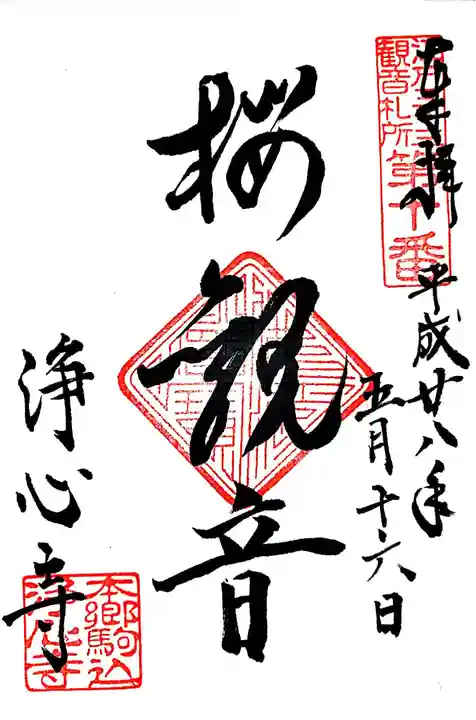 奉拝
観音札所
第十番
平成廿八年
五月十六日
桜観音
浄心寺
本郷駒込
浄心寺